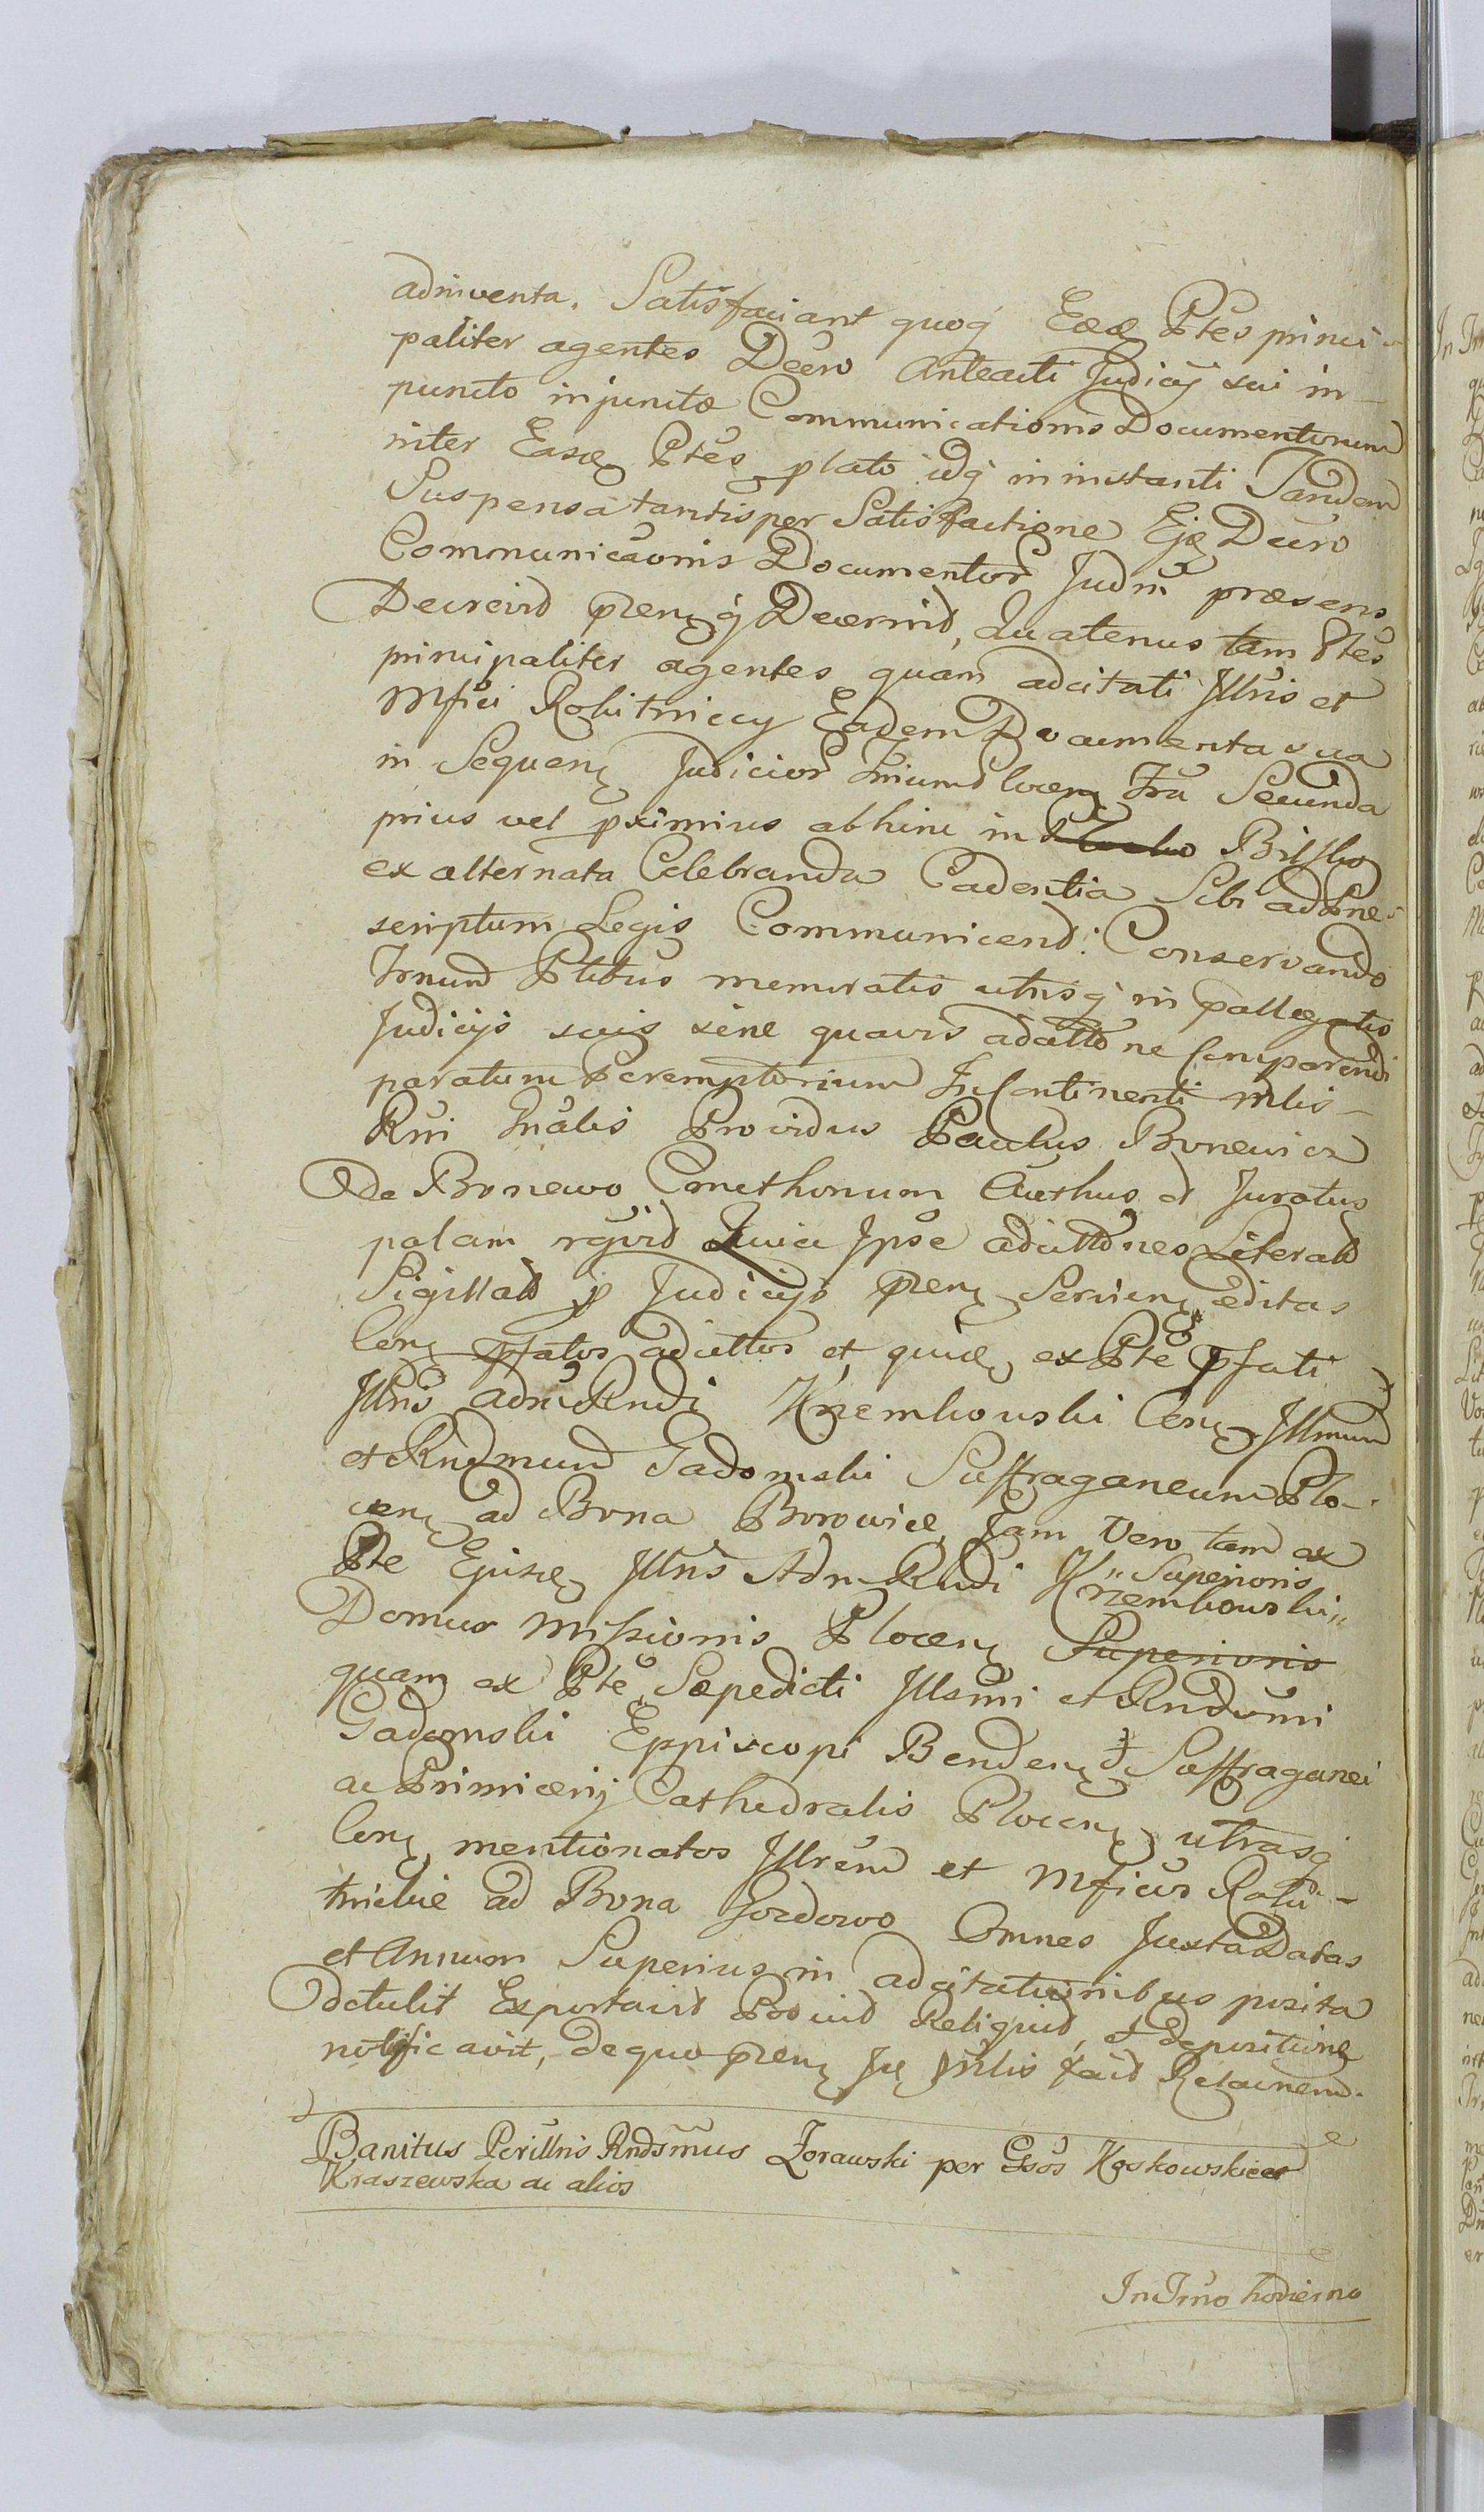 adinventa. Satisfaciant quoq Eæd Ptes princi-
paliter agentes Decro Anteacti Judicij sui in
puncto injunctæ Communicationis Documentorum
inter Easd Ptes plato idq in instanti Tandem
Suspensa tantisper Satisfactione Ejd Decro
Communicaonis Documentor Judm præsens
Decrevid Prenq Decernid, Quatenus tam Ptes
principaliter agentes quam adcitati Jllris et
Mfici Rokitniccy Eadem Documenta sua
in Sequen Judicior Trium locen Fra Secunda
prius vel pximius abhinc in Bilsko
ex alternata Celebranda Cadentia Sibi ad Præ-
scriptum Legis Communicend: Conservando
Trnum Ptibus memoratis utrisq in pallegatis
Judicijs suis sine quavis adcittone Comparendi
paratum Peremptorium In Continenti Mlis
Rni Gnalis Providus Paulus Bonewicz
De Bonewo Cmethonum Cuethus et Juratus
palam rgvid Quia Jpse adcittones Literatt
Sigillatt p Judicijs Pren Servien editas
len pfatos adcittos et quid ex Pte Pfati
Jllris adm Rndi Krzembowski Cen Jllmum
et Rndmum Gadomski Suffraganeum Plo-
cen ad Bona Borowice Jam Vero tam ex
Pte Ejusd Jllris Adm Rndi Krzembowski "Superioris"
Domus Missionis Plocen Superioris
quam ex Pte Sæpedicti Jllsmi et Rndsmi
Gadomski Eppiscopi Benden et Suffraganei
ac Primicerij Cathedralis Plocen utrasq
len mentionatos Jllrem et Mficos Roki-
tnickie ad Bona Gozdowo Omnes Juxta Datas
et Annum Superius in adcitationibus posita
Detulit Exportavit Posuid Reliquid, et depositione
notificavit, de quo Pren Je Mlis facid Relaonem.
Banitus Perillris Rndsmus Zorawski per Gsos Koskowskie et
Kraszewska ac alios
In Trno hodierno